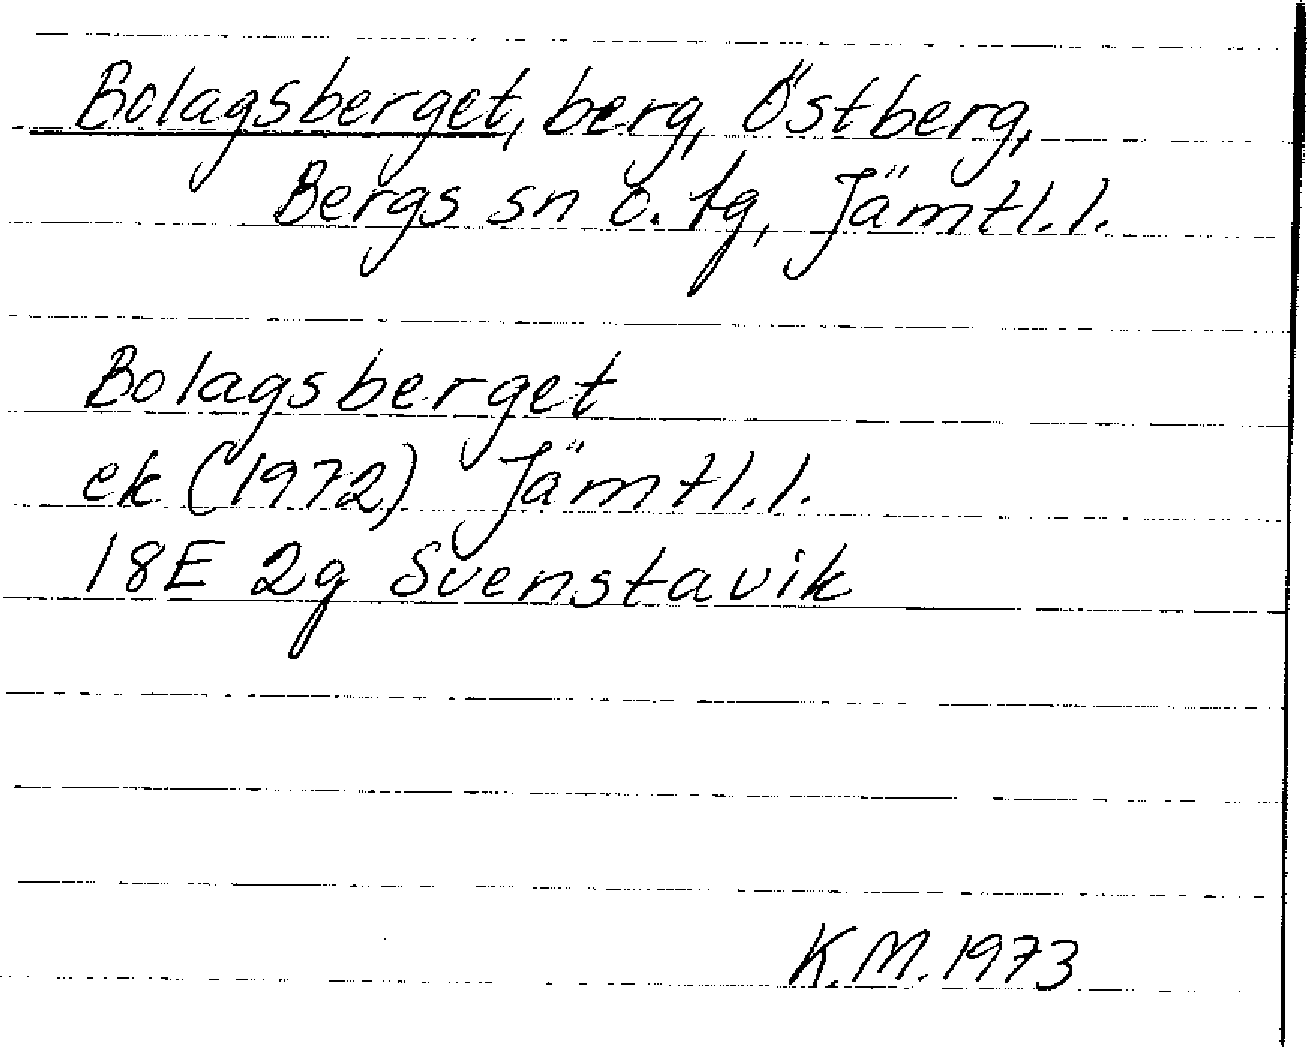 Bolagsberget, berg, Östberg,
Bergs sn o. tg, Jämtl. l.
Bolagsberget
ek (1972) Jämtl. l.
18E 2g Svenstavik
K.M. 1973